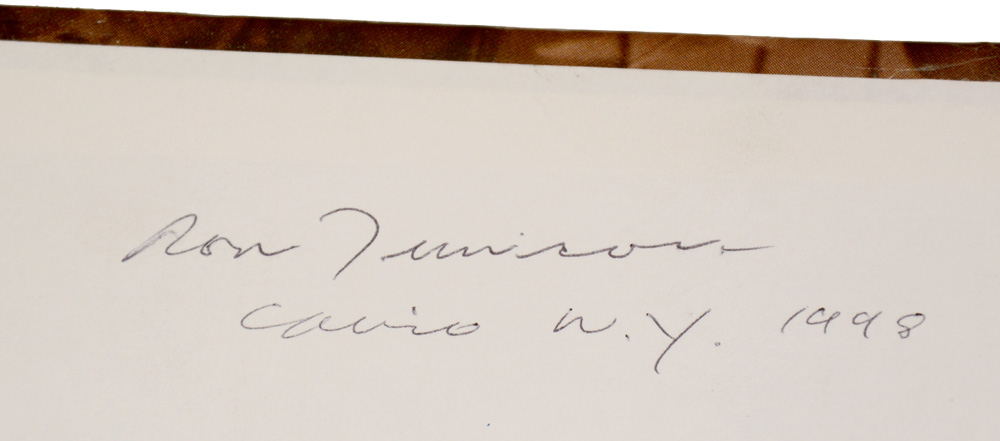 Ron Tunison
Cairo N.Y. 1998